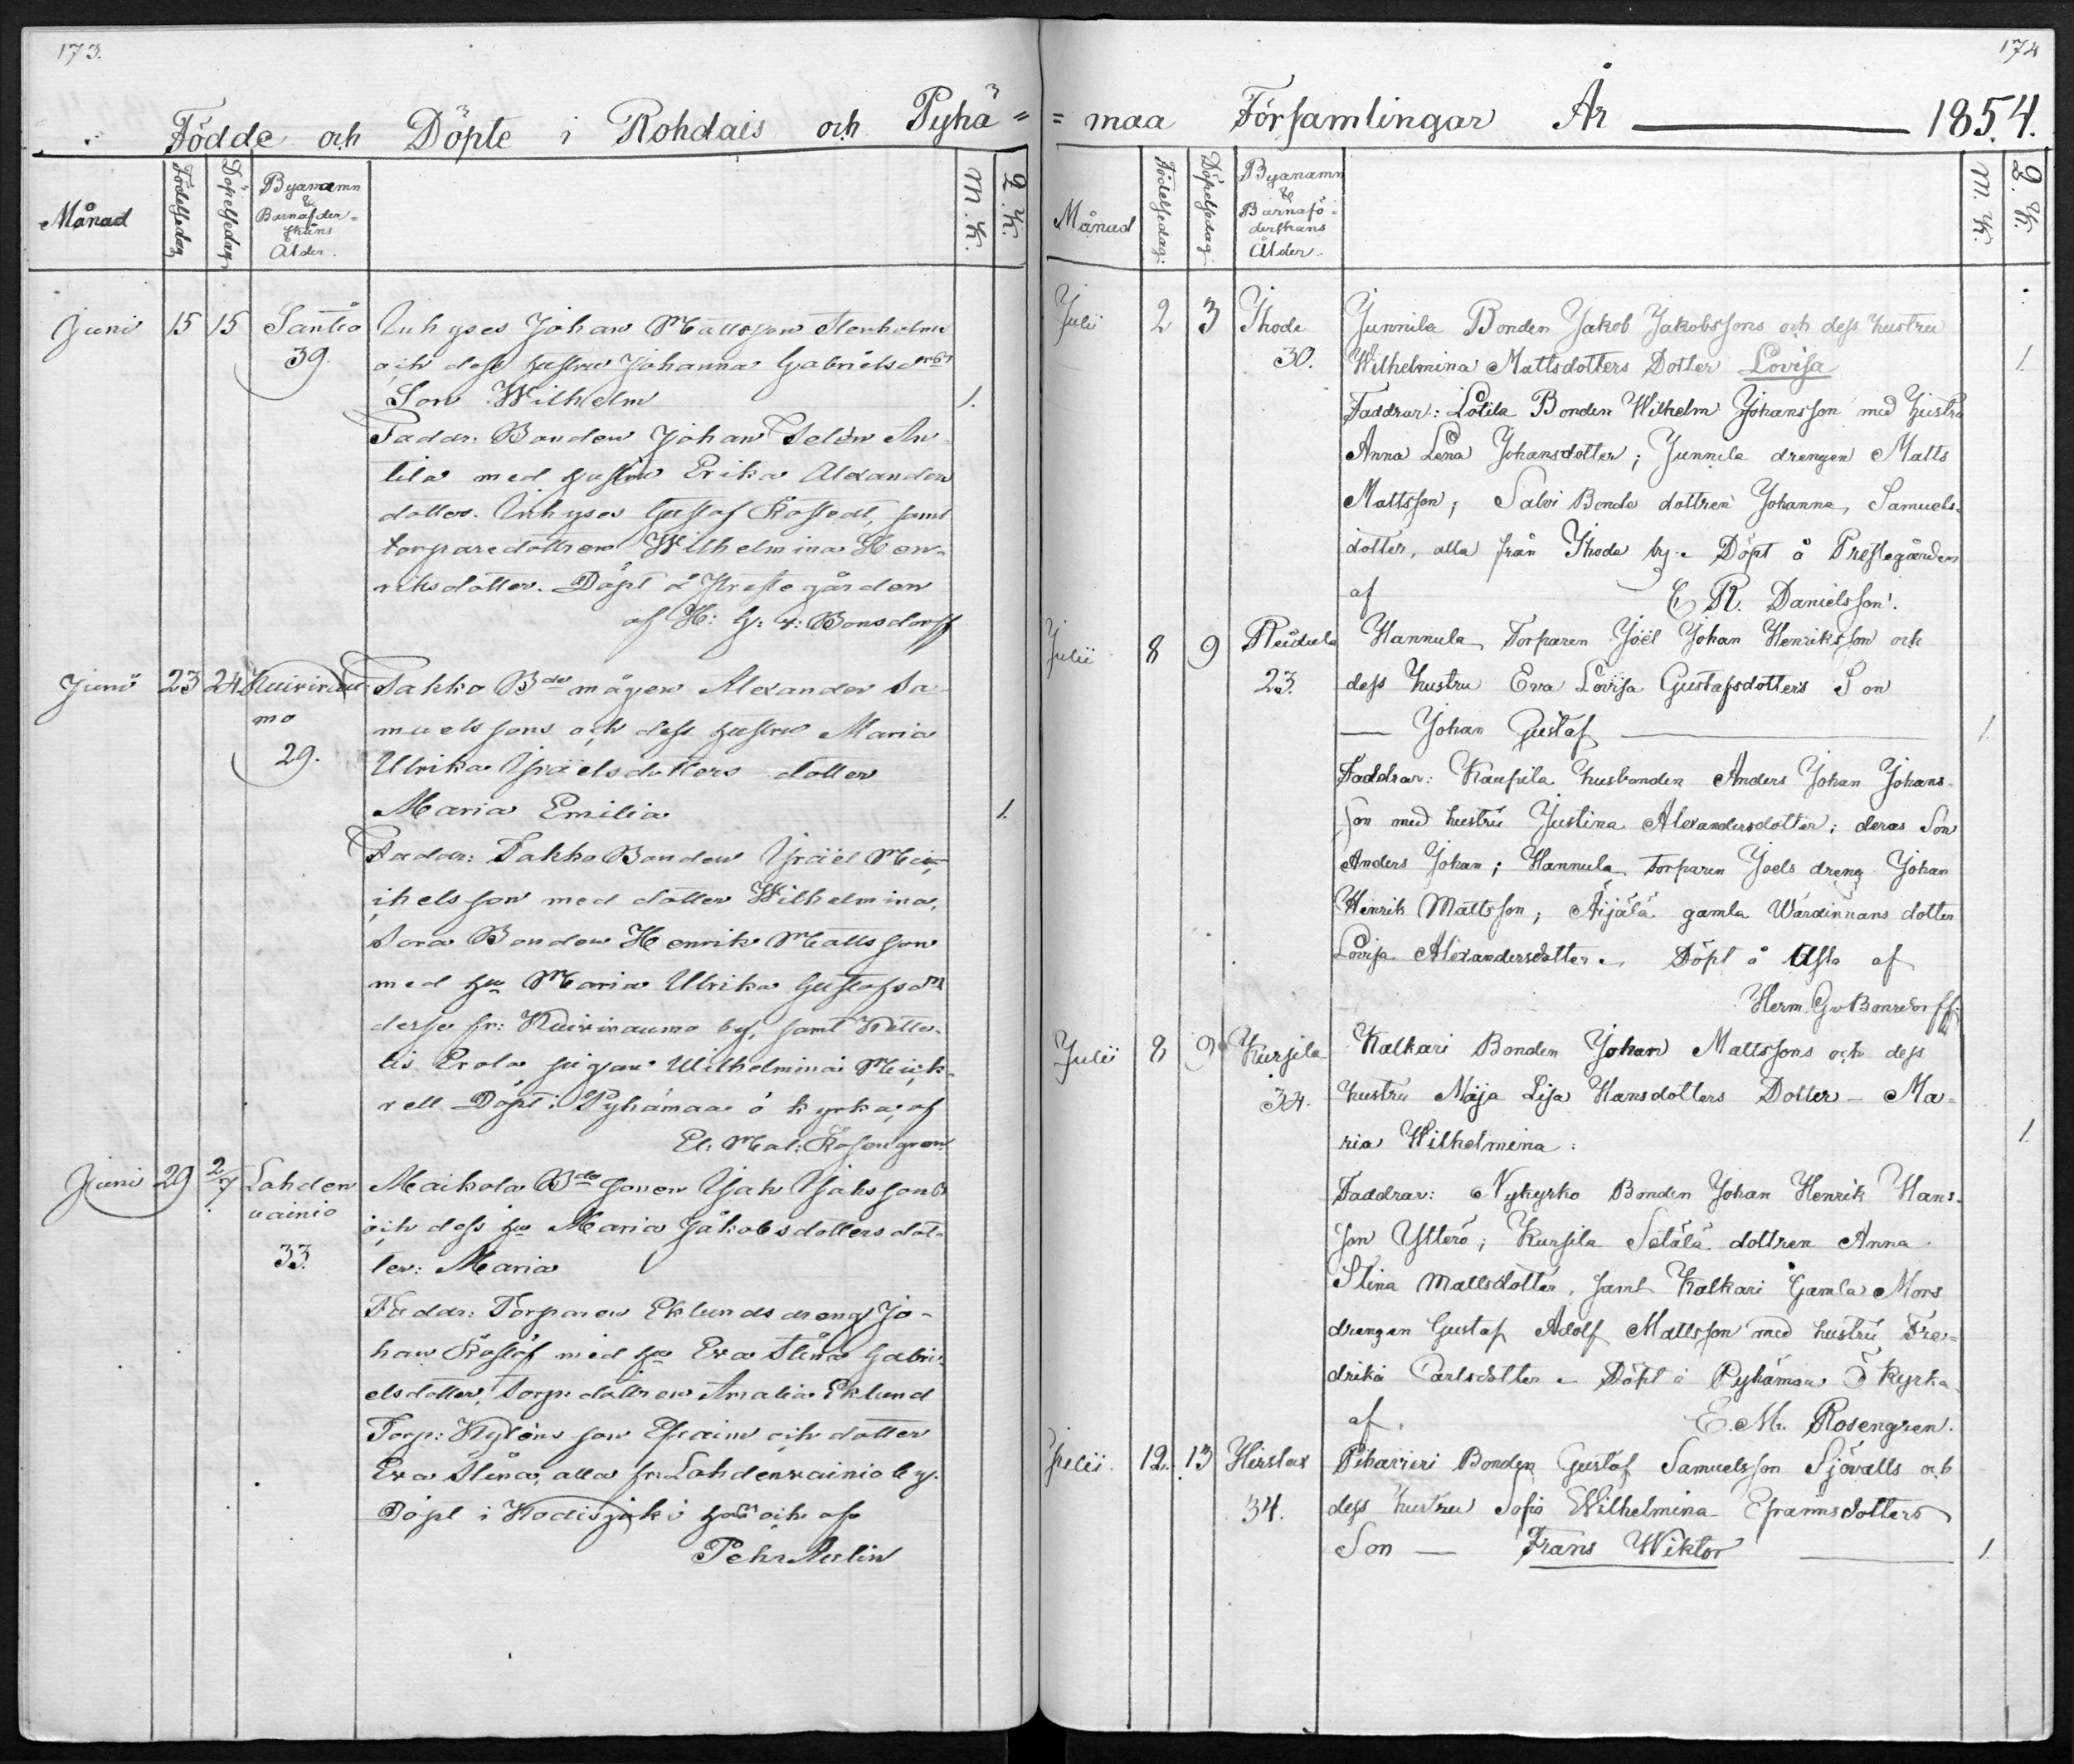 173.
Födde och Döpte i Rohdais och Pyhä=
Månad
Födelsedag
Döpelsedag
Byanamn
&
Barnafder-
skans
Ålder.
M. K.
Q. K.
Juni 15 15 Santio Inhyses Johan Mattsson Stenholms
39. och dess hustru Johanna Gabrielsdrs
Son Wilhelm 1.
Faddr: Bonden Johan Selén An
tila med hustru Erika Alexanders
dotter. Inhyses Gustaf Rostedt, samt
torparedottren Wilhelmina Hen-
riksdotter. Döpt å Prestegården
af H: G: v: Bonsdorff
Juni 23 24 Kuivirau- Takko Bde mågen Alexander Sa-
mo muelssons och dess hustru Maria
29. Ulrika Israelsdotters dotter
Maria Emilia 1.
Faddr: Takko Bonden Israel Mi-
ihelsson med dotter Wilhelmina,
Sora Bonden Henrik Mattsson
med hu Maria Ulrika Gustafsdr
desse fr: Kuivirauma by, samt
tis Erola pigan Wilhelmina
rell Döpt i Pyhämaa ö kyrka af
El: Mat: Rosengren
Juni 29 2/7 Lahden Maikola Bde sonen Isak Isakssons
vainio och dess hu Maria Jakobsdotters dot-
33. ter: Maria
Faddr: Torparen Eklunds dreng Jo-
han Roslöf med hu Eva Stina Gabri-
elsdotter, torp: dottren Amalia Eklund
Torp: Hyléns son Efraim och dotter
Eva Stina, alla fr: Lahdenvainio by.
Döpt i Hodisjoki af
Pehr Aulin
174
=maa Församlingar År 1854.
Månad
Födelsedag:
Döpelsedag
Byanamn
&
Barnafö-
derskans
Ålder.
M. K.
Q. K.
Julii 2 3 Ihode Junnila Bonden Jakob Jakobssons och dess hustru
30. Wilhelmina Mattsdotters Dotter Lovisa 1
Faddrar: Lotila Bonden Wilhelm Johansson med hustru
Anna Lena Johansdotter; Junnila drengen Matts
Mattsson; Salvi Bonde dottren Johanna, Samuels-
dotter, alla från Ihode by. Döpt å Prestegården
af E R. Danielsson.
Julii 8 9 Reidula Hannula Torparen Joël Johan Henriksson och
23. dess hustru Eva Lovisa Gustafsdotters Son
— Johan Gustaf — 1.
Faddrar: Kaupila husbonden Anders Johan Johans-
son med hustru Justina Alexandersdotter; deras Son
Anders Johan; Hannula Torparen Joels dreng Johan
Henrik Mattsson; Äijälä gamla Wärdinnans dotter
Lovisa Alexandersdotter. Döpt å af
Herm. G v Bonsdorff.
Julii 8 9 Kursila Kalkari Bonden Johan Mattssons och dess
34. hustru Maja Lisa Hansdotters Dotter – Ma-
ria Wilhelmina: 1.
Faddrar: Nykyrko Bonden Johan Henrik Hans-
son Ytterö; Kursila Setälä dottren Anna
Stina Mattsdotter, samt Kalkari Gamla Mors
drengen Gustaf Adolf Mattsson med hustru Fre-
drika Carlsdotter. Döpt i Pyhämaa Ö kyrka
af. E. M. Rosengren.
Julii. 12. 13 Hirslax Piharieri Bonden Gustaf Samuelsson Sjövalls och
34. dess hustru Sofia Wilhelmina Efraimsdotters
Son — Frans Wiktor — 1.